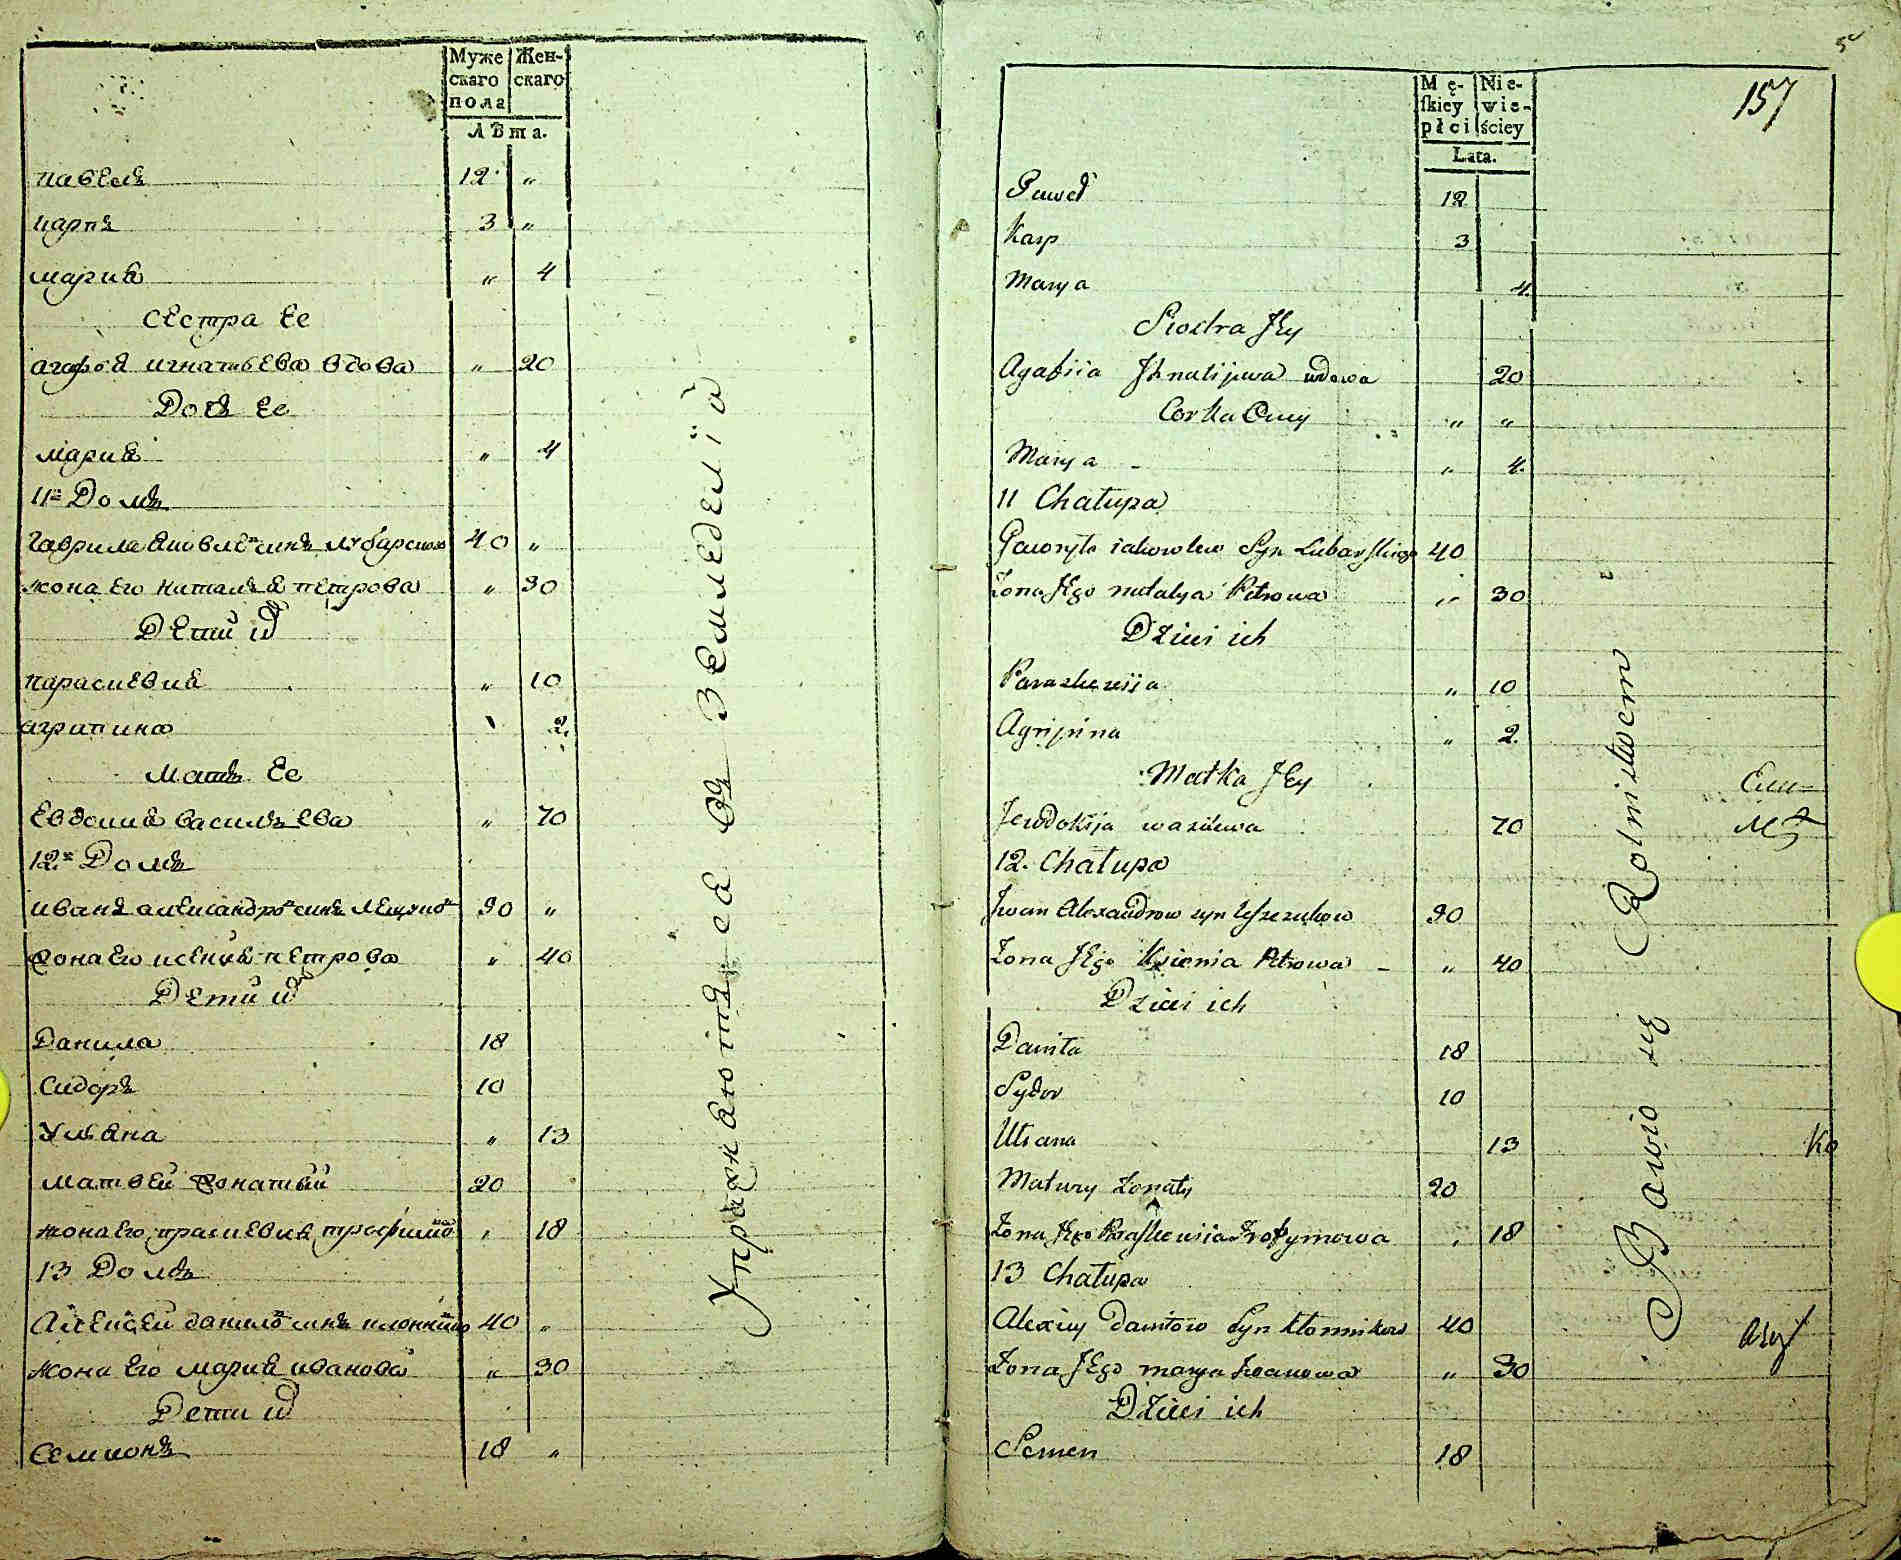 Муже Жен-
скаго скаго
пола
Лѣта.
павелъ 12 „
карпъ 3 „
мария „ 4
сестра ее
агафия игнатьева вдова „ 20
Дочь ее
Мария „ 4
11й Домъ
Гаврила яковлевъ синъ любарского 40 „
жона его наталья петрова „ 30
Дети их
параскевия „ 10
агрипина „ 2.
Мать Ее
Евдокия василь Ева „ 70
12й Домъ
иванъ александровъ синъ 90 „
жона его ксения петрова „ 40
Дети их
Данила 18
Сидоръ 10
Ульяна „ 13
Матвей жонатый 20
жона его праскевия трофимова „ 18
13 Домъ
Алексей данилов синъ 40 „
жона его мария иванова „ 30
Дети их
Семионъ 18 „
Упражняются въ Земледелїи
157
Mę- Nie-
ſkiey wie-
płci ściey
Lata.
Paweł 12
Karp 3
Marya 4.
Siostra Jey
Agafiia Jhnatijewa wdowa 20
Corka Oney „ „
Marya - „ 4.
11 Chałupa
Gawryło iakowlew Syn Lubarſkiego 40
Zona Jego natalya Petrowa „ 30
Dzieci ich
Paraskewija „ 10
Agripina „ 2.
Matka Jey
Jewdokija wasilewa 70
12. Chałupa
Jwan Alexandrow syn 90
Zona Jego Ksienia Petrowa - „ 40
Dzieci ich
Daniła 18
Sydor 10
Uliana 13
Matwey żonaty 20
Zona Jego Praſkewia Trofymowa „ 18
13 Chałupa
Alexiey Daniłow Syn Kłonnikow 40
Zona Jego marya Iwanowa „ 30
Dzieci ich
Semen 18
Bawio się Rolnistwem
Ko